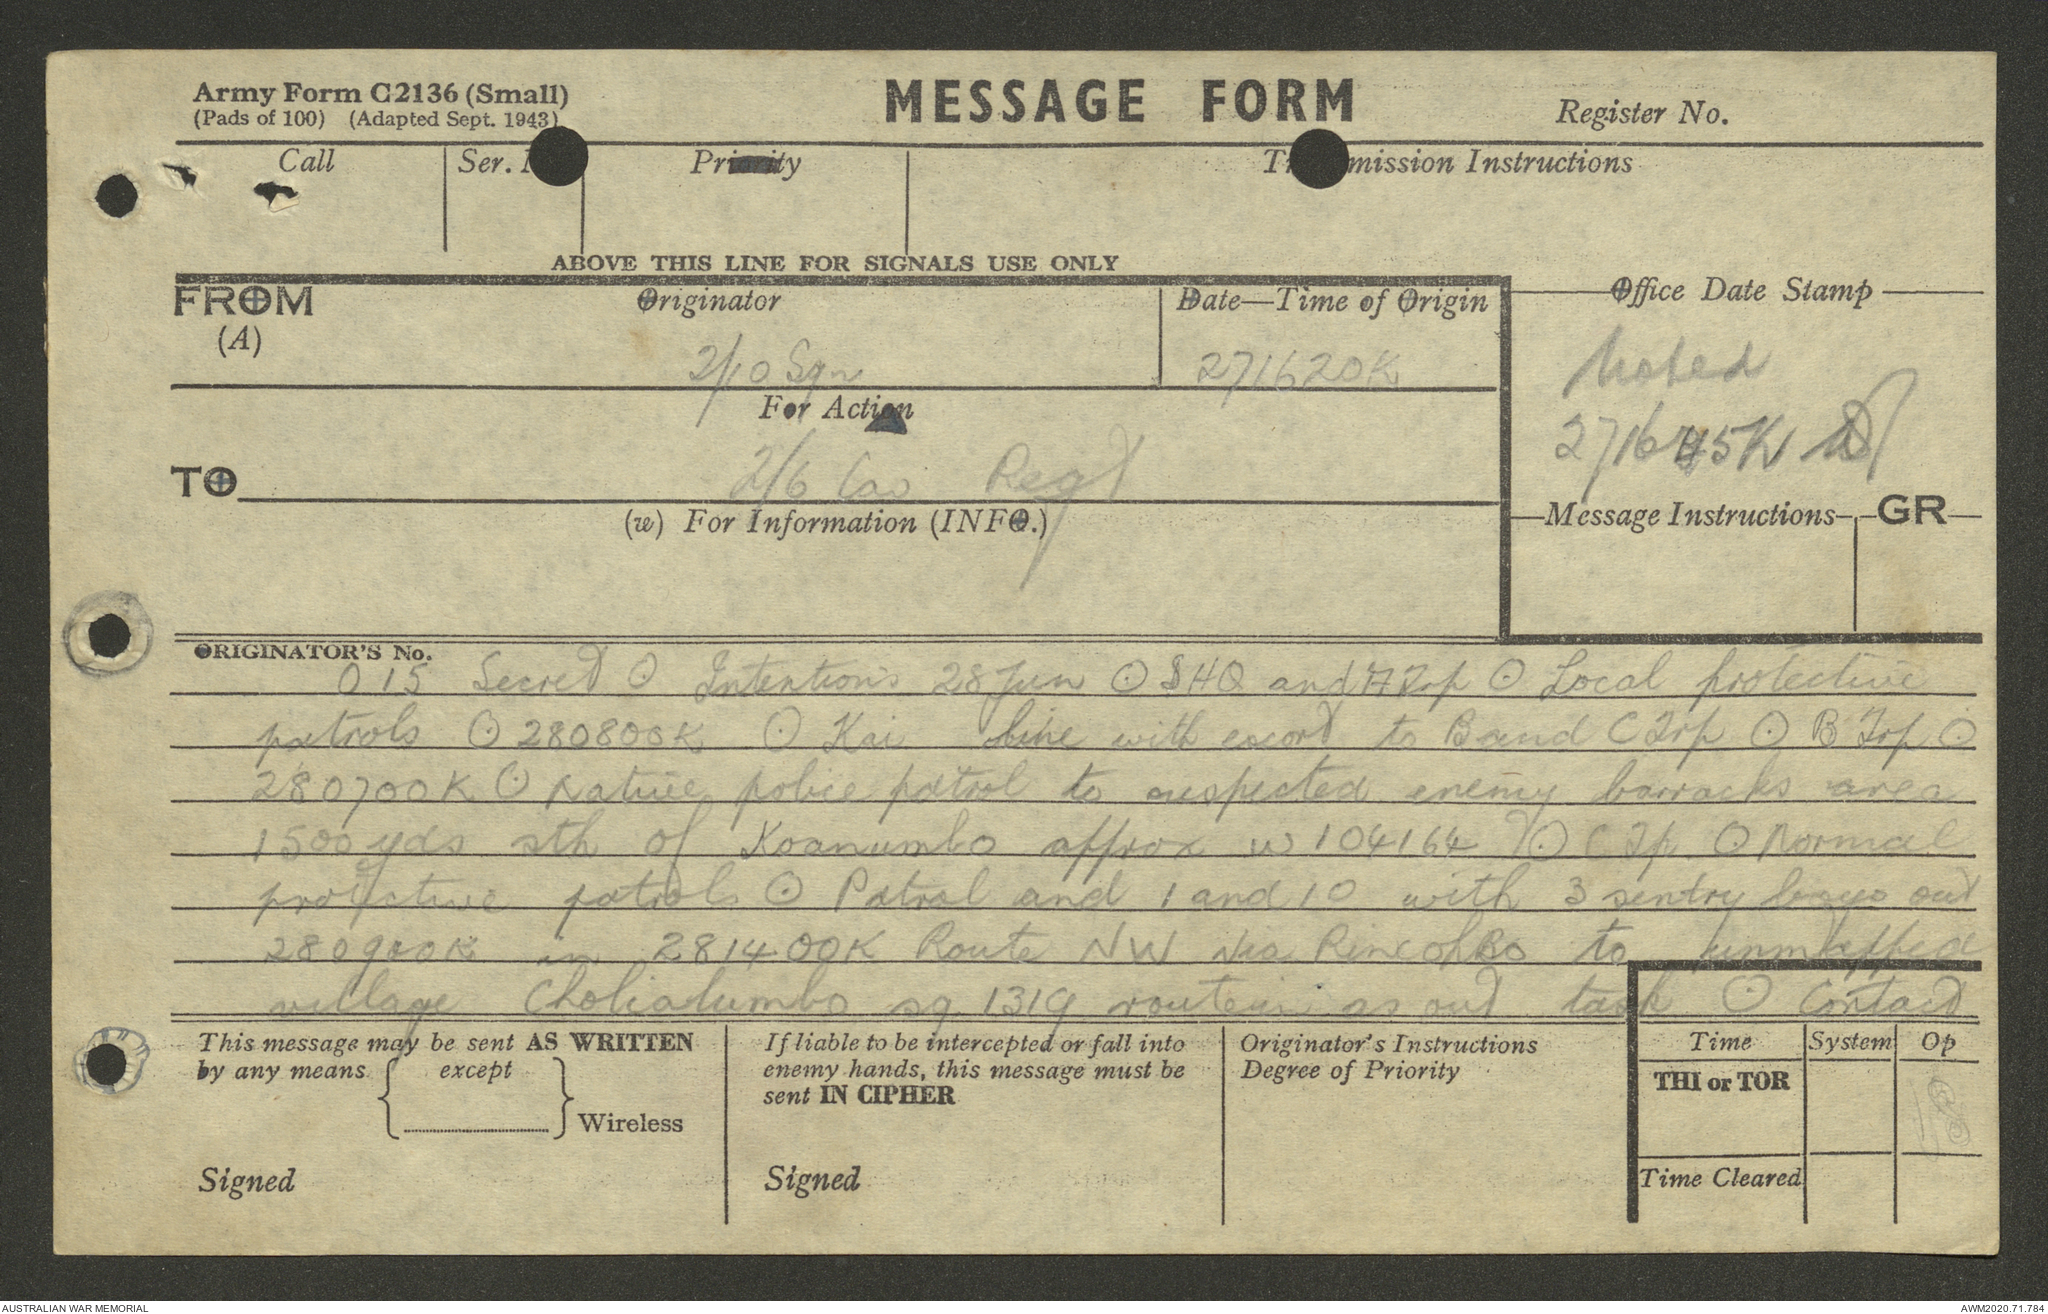 Army Form C2136 (Small)
(Pads of 100) (Adapted Sept. 1943)
MESSAGE FORM
Register No.
Call
Ser.
Priority
mission Instructions
ABOVE THIS LINE FOR SIGNALS USE ONLY
FROM
(A)
Originator
2/10 Sqn
Date—Time of Origin
271620K
Office Date Stamp
Noted
271645K
For Action
TO
2/6 Cav Regt
(w) For Information (INFO.)
Message Instructions
GR
ORIGINATOR'S No.
015 Secret ⊙ Intentions 28 Jun ⊙ SHQ and A Trp ⊙ Local protective
patrols ⊙ 280800K ⊙ Kai line with escort to B and C Trp ⊙ B Trp ⊙
280700K ⊙ Native police patrol to suspected enemy barracks area
1500 yds sth of Koanumbo approx w 104164 ⊙ C Tp ⊙ Normal
protective patrols ⊙ Patrol and 1 and 10 with 3 sentry boys out
280900K in 281400K Route NW via to unmapped
village sq. 1319 route in as out task ⊙ Contact
This message may be sent AS WRITTEN
by any means
except
Wireless
Signed
If liable to be intercepted or fall into
enemy hands, this message must be
sent IN CIPHER
Signed
Originator's Instructions
Degree of Priority
Time
System
Op
THI or TOR
Time Cleared
AUSTRALIAN WAR MEMORIAL
AWM2020.71.784